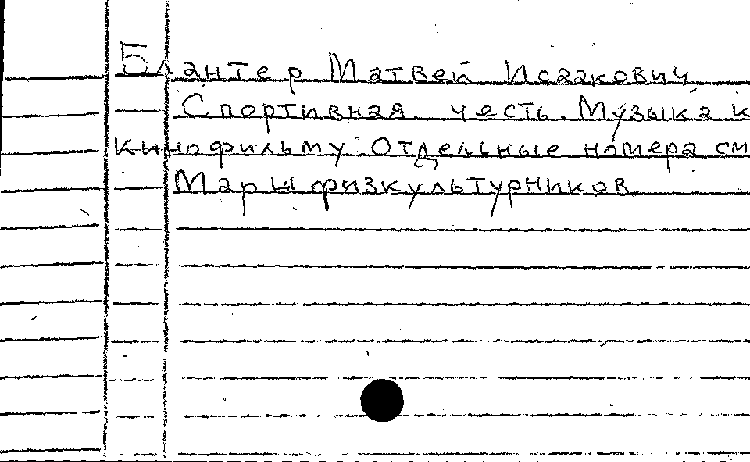 Блантер Матвей Исаакович
Спортивная честь. Музыка к
кинофильму. Отдельные номера см
Марш физкультурников